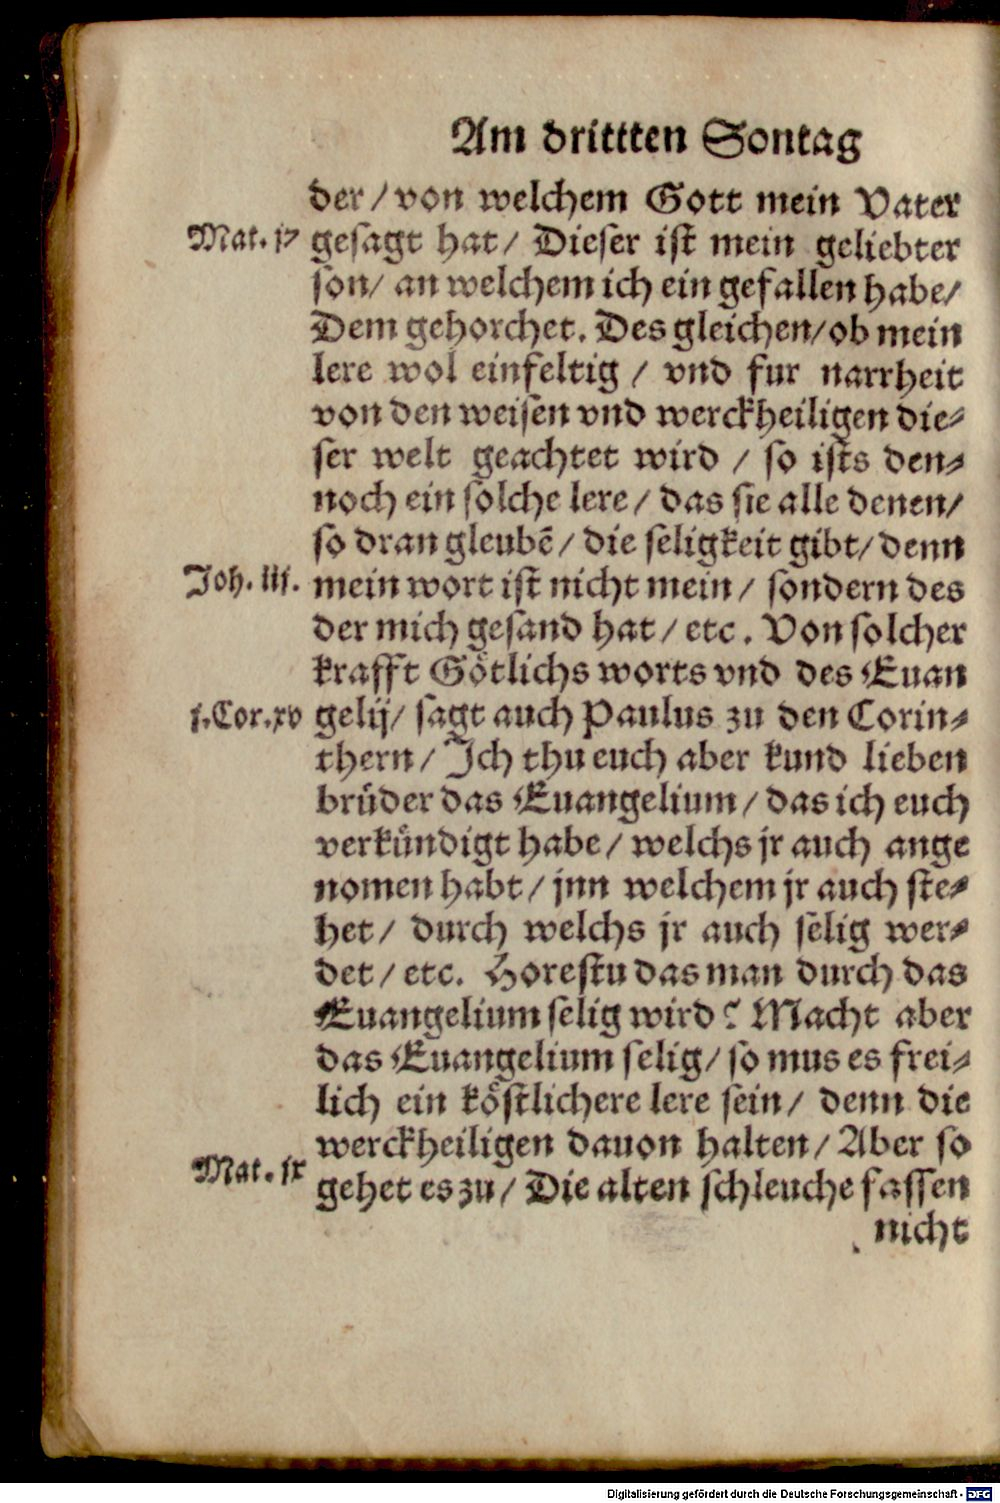 Am drittten Sontag
der / von welchem Gott mein Vater
Mat. j7 gesagt hat / Dieser ist mein geliebter
son / an welchem ich ein gefallen habe /
Dem gehorchet. Des gleichen / ob mein
lere wol einfeltig / vnd fur narrheit
von den weisen vnd werckheiligen die⸗
ser welt geachtet wird / so ists den⸗
noch ein solche lere / das sie alle denen /
so dran gleubē / die seligkeit gibt / denn
Joh. iij. mein wort ist nicht mein / sondern des
der mich gesand hat / etc. Von solcher
krafft Goͤtlichs worts vnd des Euan
j.Cor.xv gelij / sagt auch Paulus zu den Corin⸗
thern / Ich thu euch aber kund lieben
bruͤder das Euangelium / das ich euch
verkuͤndigt habe / welchs jr auch ange
nomen habt / jnn welchem jr auch ste⸗
het / durch welchs jr auch selig wer⸗
det / etc. Horestu das man durch das
Euangelium selig wird? Macht aber
das Euangelium selig / so mus es frei⸗
lich ein koͤstlichere lere sein / denn die
werckheiligen dauon halten / Aber so
Mat. jx gehet es zu / Die alten schleuche fassen
nicht
Digitalisierung gefördert durch die Deutsche Forschungsgemeinschaft - DFG